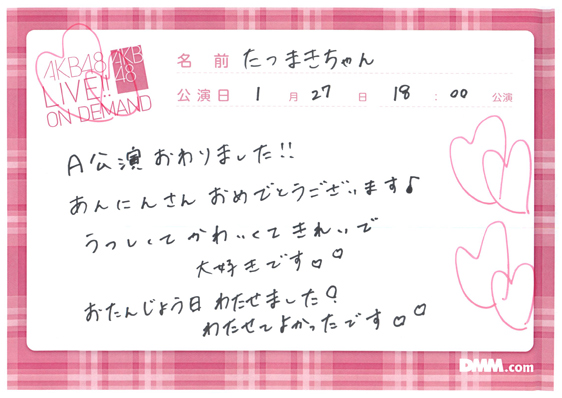 AKB48 LIVE!! ON DEMAND
AKB48
名前 たつまきちゃん
公演日 1月27日 18:00公演
A公演おわりました!!
あんにんさん おめでとうございます♪
うつしくて かわいくて きれいで
大好きです♡♡
おたんじょう日 わたせました♡
わたせてよかったです♡♡
DMM.com